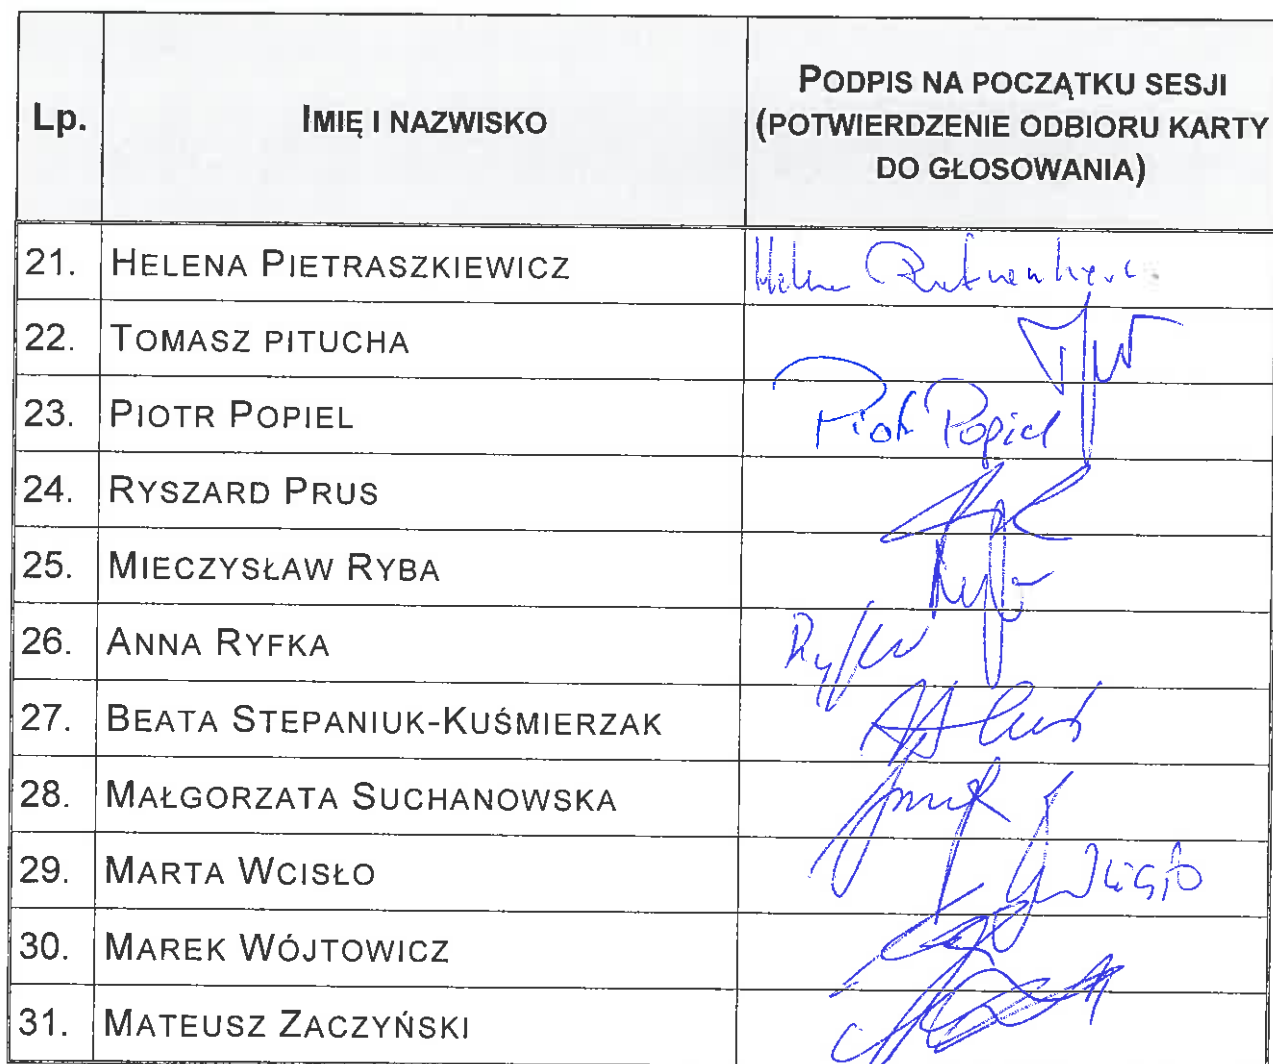 Lp.
IMIĘ I NAZWISKO
PODPIS NA POCZĄTKU SESJI
(POTWIERDZENIE ODBIORU KARTY
DO GŁOSOWANIA)
21. HELENA PIETRASZKIEWICZ
22. TOMASZ PITUCHA
23. PIOTR POPIEL Piotr Popiel
24. RYSZARD PRUS
25. MIECZYSŁAW RYBA
26. ANNA RYFKA
27. BEATA STEPANIUK-KUŚMIERZAK
28. MAŁGORZATA SUCHANOWSKA
29. MARTA WCISŁO Wcisło
30. MAREK WÓJTOWICZ
31. MATEUSZ ZACZYŃSKI